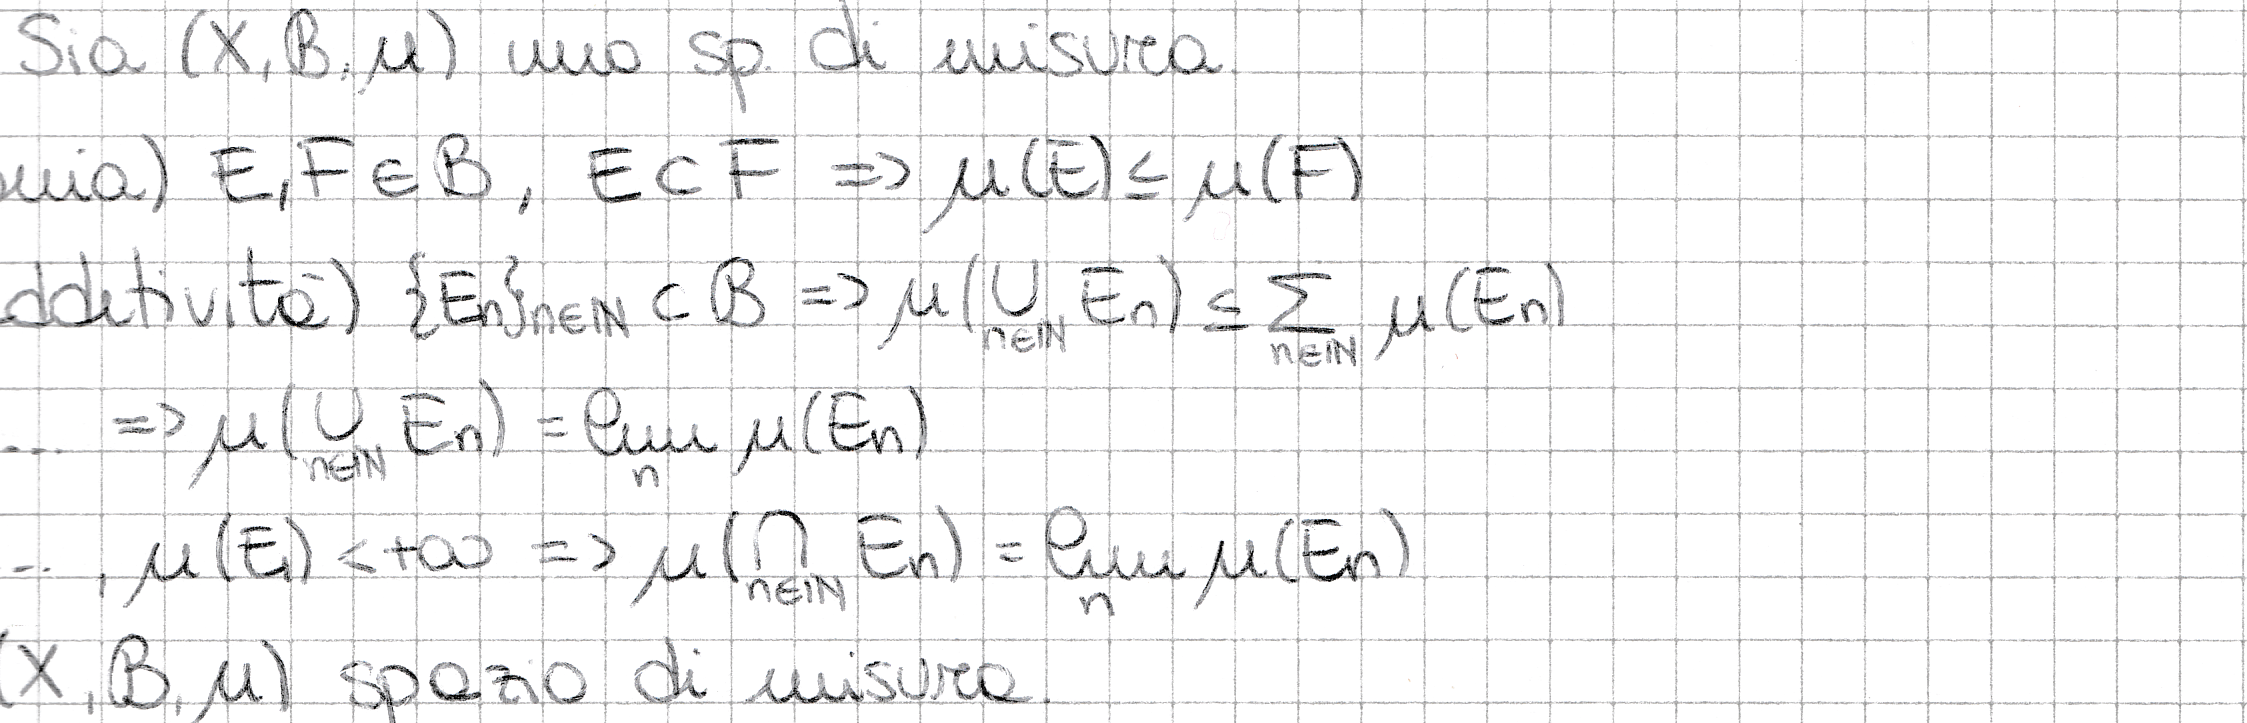 Sia (X, B, μ) uno sp. di misura.
nia) E, F ∈ B, E ⊂ F => μ(E) ≤ μ(F)
dditività) {En}n∈ℕ ⊂ B => μ(⋃n∈ℕ En) ≤ ∑n∈ℕ μ(En)
... => μ(⋃n∈ℕ En) = lim n μ(En)
..., μ(E1) < +∞ => μ(⋂n∈ℕ En) = lim n μ(En)
(X, B, μ) spazio di misura.